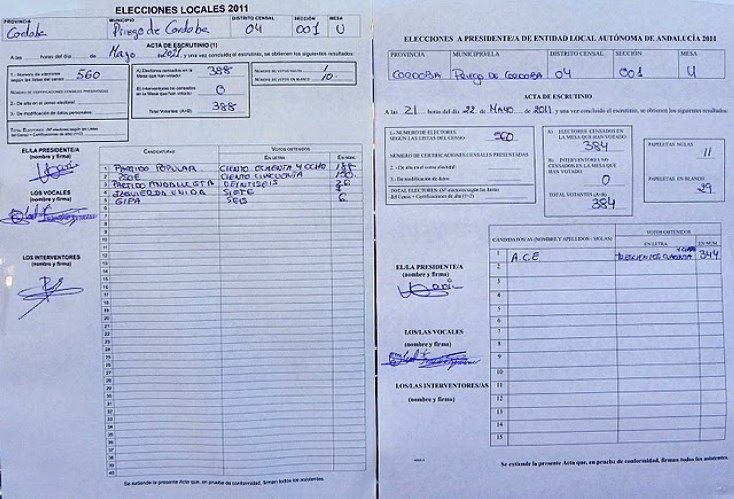 ELECCIONES LOCALES 2011
PROVINCIA MUNICIPIO DISTRITO CENSAL SECCIÓN MESA
Cordoba Priego de Cordoba 04 001 U
ACTA DE ESCRUTINIO (1)
A las horas del día de Mayo de 2011, y una vez concluido el escrutinio, se obtienen los siguientes resultados:
1.- Número de electores según las listas del censo 560
NÚMERO DE CERTIFICACIONES CENSALES PRESENTADAS
2.- De alta en el censo electoral
3.- De modificación de datos personales
TOTAL ELECTORES (Nº electores según las Listas del Censo + Certificaciones de alta)(1+2)
A) Electores censados en la Mesa que han votado: 388
B) Interventores no censados en la Mesa que han votado: 0
TOTAL VOTANTES (A+B) 388
NÚMERO DE VOTOS NULOS 1
NÚMERO DE VOTOS EN BLANCO 10
EL/LA PRESIDENTE/A
(nombre y firma)
LOS VOCALES
(nombre y firma)
LOS INTERVENTORES
(nombre y firma)
CANDIDATURAS VOTOS OBTENIDOS
EN LETRA EN NÚM.
1 PARTIDO POPULAR CIENTO OCHENTA Y OCHO 188
2 PSOE CIENTO CINCUENTA 150
3 PARTIDO ANDALUCISTA VEINTISEIS 26
4 IZQUIERDA UNIDA SIETE 7
5 GIPA SEIS 6
6
7
8
9
10
11
12
13
14
15
16
17
18
19
20
21
22
23
24
25
26
27
28
29
30
31
32
33
34
35
36
37
38
39
40
Se extiende la presente Acta que, en prueba de conformidad, firman todos los asistentes.
ELECCIONES A PRESIDENTE/A DE ENTIDAD LOCAL AUTÓNOMA DE ANDALUCÍA 2011
PROVINCIA MUNICIPIO/ELA DISTRITO CENSAL SECCIÓN MESA
CORDOBA PRIEGO DE CORDOBA 04 001 U
ACTA DE ESCRUTINIO
A las 21 horas del día 22 de MAYO de 2011, y una vez concluido el escrutinio, se obtienen los siguientes resultados:
1.- NÚMERO DE ELECTORES SEGÚN LAS LISTAS DEL CENSO 560
NÚMERO DE CERTIFICACIONES CENSALES PRESENTADAS
2.- De alta en el censo electoral
3.- De modificación de datos
TOTAL ELECTORES (Nº electores según las Listas del Censo + Certificaciones de alta) (1+2)
A) ELECTORES CENSADOS EN LA MESA QUE HAN VOTADO: 384
B) INTERVENTORES NO CENSADOS EN LA MESA QUE HAN VOTADO: 0
TOTAL VOTANTES (A+B) 384
PAPELETAS NULAS 11
PAPELETAS EN BLANCO 29
EL/LA PRESIDENTE/A
(nombre y firma)
LOS/LAS VOCALES
(nombre y firma)
LOS/LAS INTERVENTORES/AS
(nombre y firma)
CANDIDATOS/AS (NOMBRE Y APELLIDOS - SIGLAS) VOTOS OBTENIDOS
EN LETRA EN NÚM
1 A.C.E TRESCIENTOS CUARENTA Y CUATRO 344
2
3
4
5
6
7
8
9
10
11
12
13
14
15
Se extiende la presente Acta que, en prueba de conformidad, firman todos los asistentes.